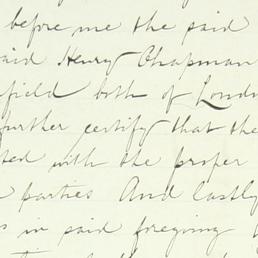 before me the said
said Henry Chapman
field both of Lond
further certify that the
ted with the proper
parties And lastly
in said foregoing